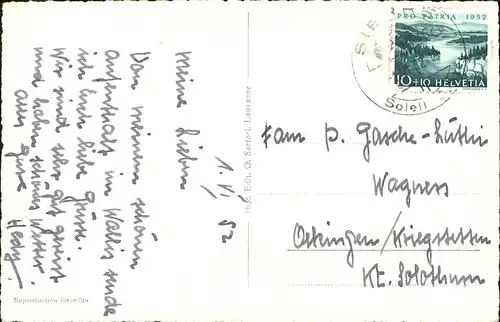 1. VI. 52
Meine Lieben
Von meinem schönen
Aufenthalt im Wallis sende
ich Euch liebe Grüsse.
Wir sind sehr gut gereist
und haben schönes Wetter.
alles Gute
Hedy.
Reproduction interdite
Edn. O. Sartori, Lausanne
PRO PATRIA 1952
10+10 HELVETIA
SIE
Soleil
Fam. P. Gasche-Lüthi
Wagners
Oekingen/Kriegstetten
Kt. Solothurn